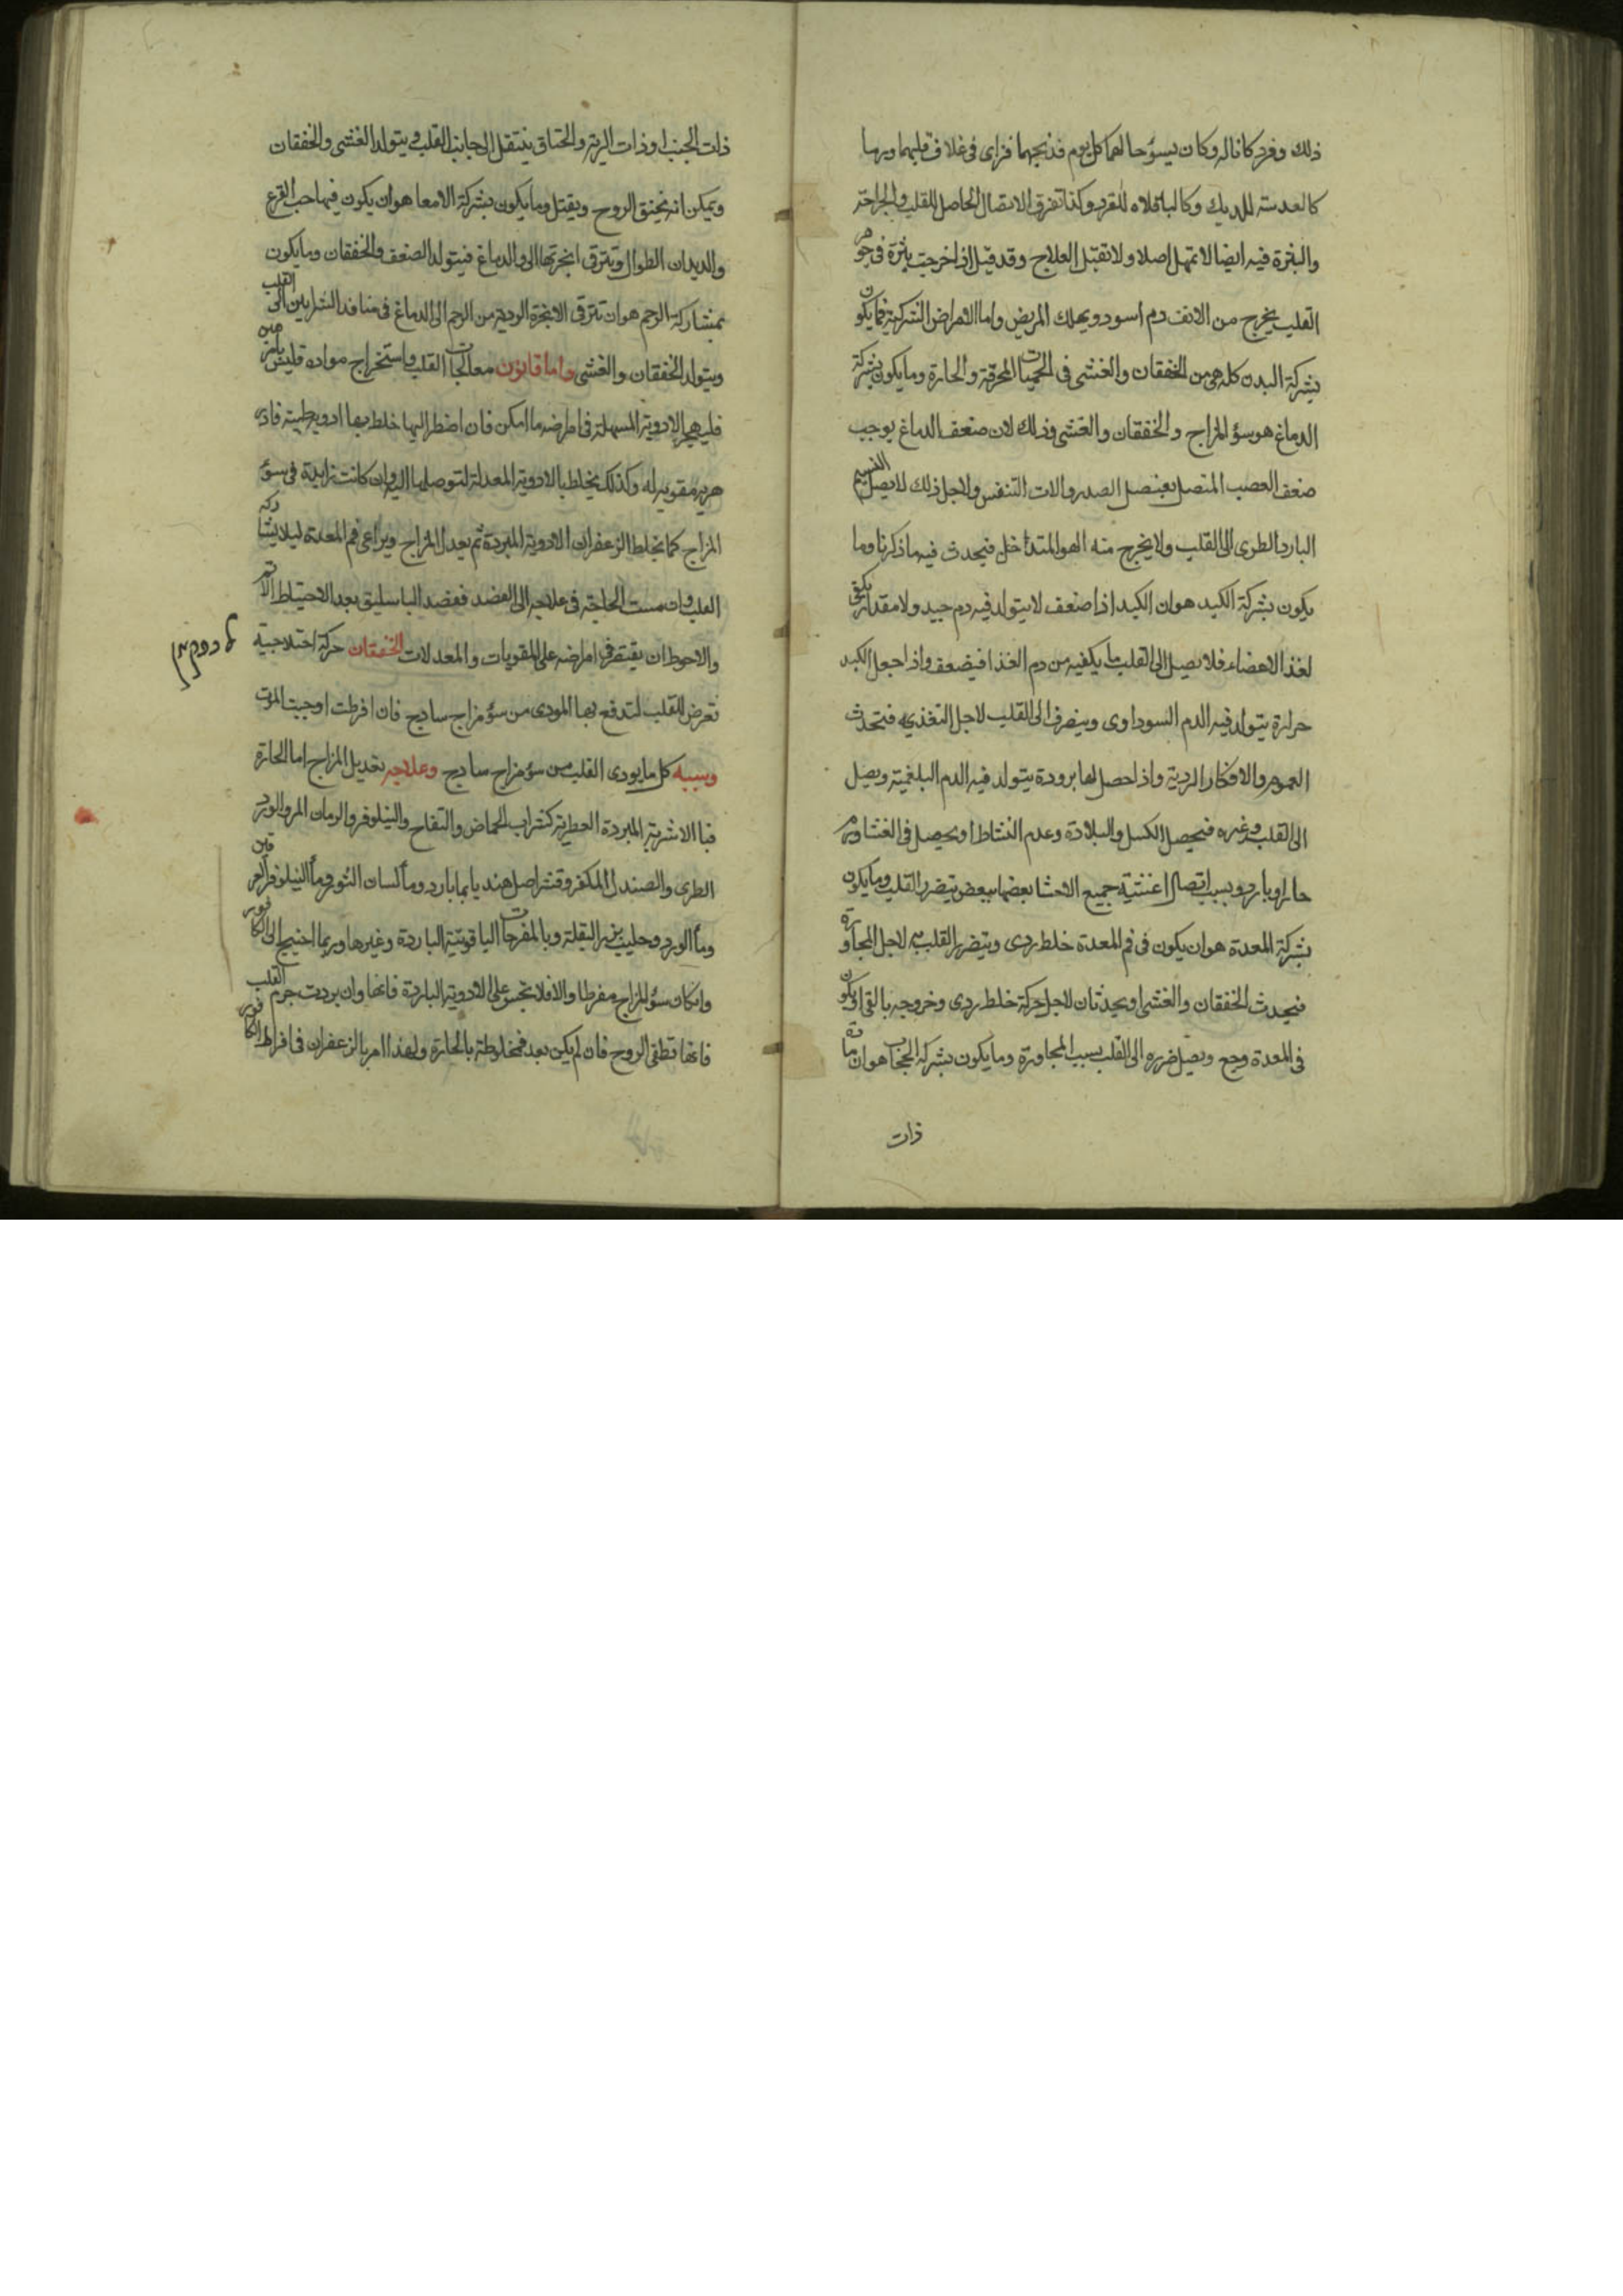 ذلك وفرد كانا له وكان يسؤ حالهما كل يوم فذبحهما فراى فى غلاف قلبهما ورما
كالعدسة للديك وكالباقلاه للقرد وكذا تفرق الاتصال الحاصل للقلب والجراحة
والبثرة فيه ايضا لا تمهل اصلا ولا تقبل العلاج وقد قيل اذا خرجت بثرة فى جوهر
القلب يخرج من الانف دم اسود ويهلك المريض واما الامراض الشركية فما يكون
بشركة البدن كله هى من الخفقان والغشى فى الحميات المحرقة والحارة وما يكون بشركة
الدماغ هو سؤ المزاج والخفقان والغشى وذلك لان ضعف الدماغ يوجب
ضعف العصب المتصل بعضل الصدر والات التنفس ولاجل ذلك لا يصل النسيم
البارد الطرى الى القلب ولا يخرج منه الهوا المتداخل فيحدث فيه ما ذكرنا وما
يكون بشركة الكبد هو ان الكبد اذا ضعف لا يتولد فيه دم جيد ولا مقدار يكفى
لغذا الاعضاء فلا يصل الى القلب ما يكفيه من دم الغذا فيضعف واذا حصل الكبد
حرارة يتولد فيه الدم السوداوى وينصرف الى القلب لاجل التغذيه فتحدث
الهموم والافكار الردية واذا حصل لها برودة يتولد فيه الدم البلغمية ويصل
الى القلب وغيره فيحصل الكسل والبلادة وعدم النشاط او يحصل فى الغشا ورم
حار او بارد وبسبب اتصال اغشية جميع الاحشا بعضها ببعض يتضرر القلب وما يكون
بشركة المعدة هو ان يكون فى فم المعدة خلط ردى ويتضرر القلب به لاجل المجاورة
فيحدث الخفقان والغشى او يحدثان لاجل حركة خلط ردى وخروجه بالقى او يكون
فى المعدة وجع ويصل ضرره الى القلب بسبب المجاورة وما يكون بشركة الحجاب هو ان مادة
ذات
ذات الجنب او ذات الرية والخناق ينتقل الى جانب القلب ويتولد الغشى والخفقان
ويمكن انه يخنق الروح ويقتل وما يكون بشركة الامعا هو ان يكون فيها حب القرع
والديدان الطوال وتترقى ابخرتها الى الدماغ فيتولد الضعف والخفقان وما يكون
بمشاركة الرحم هو ان تترقى الابخرة الردية من الرحم الى الدماغ فى منافذ الشرايين الى القلب
ويتولد الخفقان والغشى واما قانون معالجات القلب واستخراج مواده فليس
فليهجر الادوية المسهلة فى امراضه ما امكن فان اضطر اليها خلط بها ادوية طيبة
مقوية له وكذلك يخلط بالادوية المعدلة لتوصلها اليه وان كانت زايدة فى سؤ
المزاج كما يخلط الزعفران الادوية المبردة ثم يعدل المزاج ويراعى فم المعدة ليلا يشاركه
القلب وان مست الحاجة فى علاجه الى الفصد ففصد الباسليق بعد الاحتياط
والاحوط ان يقتصر فى امراضه على المقويات والمعدلات الخفقان حركة اختلاجية
تعرض للقلب لتدفع بها المودى من سؤ مزاج ساذج فان افرطت اوجبت الموت
وسببه كل ما يودى القلب من سؤ مزاج ساذج وعلاجه تعديل المزاج اما الحارة
فبا الاشربة المبردة العطرية كشراب الحماض والتفاح والنيلوفر والرمان المر والورد
الطرى والصندل المكفر وقشر اصل هنديا بما بارد وماء لسان الثور وماء النيلوفر
وماء الورد وحليب بزر البقلة وبالمفرحات الياقوتية الباردة وغيرها وربما احتيج الى الكافور
وان كان سؤ المزاج مفرطا والا فلا تجسر على الادوية الباردة فانها وان بردت جرم القلب
فانها تطفى الروح فان لم يكن بد فمخلوطة بالحارة ولهذا امر بالزعفران فى اقراط الكافور